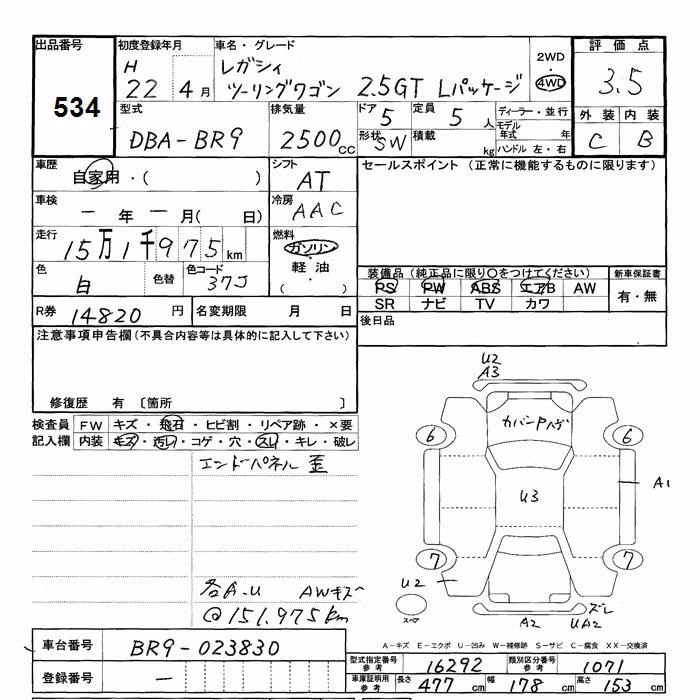 出品番号 初度登録年月 車名・グレード 2WD 評価点
534 H 22 4月 レガシィ ツーリングワゴン 2.5GT Lパッケージ ・ 4WD 3.5
型式 排気量 ドア 定員 ディーラー・並行 外装 内装
DBA-BR9 2500cc 5 5人 モデル年式 年 C B
形状 SW 積載 kg ハンドル 左・右
車歴 自家用・( ) シフト AT セールスポイント (正常に機能するものに限ります)
車検 ー年ー月( 日) 冷房 AAC
走行 15万1千975km 燃料 ガソリン・軽油 ( )
色 白 色替 色コード 37J
装備品(純正品に限り○をつけてください) 新車保証書
PS PW ABS エアB AW 有・無
SR ナビ TV カワ
R券 14820円 名変期限 月 日 後日品
注意事項申告欄(不具合内容等は具体的に記入して下さい)
修復歴 有 〔箇所 〕
検査員 FW キズ・飛石・ヒビ割・リペア跡・×要
記入欄 内装 キズ・汚レ・コゲ・穴・スレ・キレ・破レ
エンドパネル 歪
各A.U AWキズ
@151,975km
U2
A3
カバーPハゲ
6 6
U3
A1
7 7
U2
スペア
A2 UA2 ズレ
A-キズ E-エクボ U-凹み W-補修跡 S-サビ C-腐食 XX-交換済
車台番号 BR9-023830
登録番号 ー
型式指定番号参考 16292 類別区分番号参考 1071
車庫証明用参考 長さ 477cm 幅 178cm 高さ 153cm